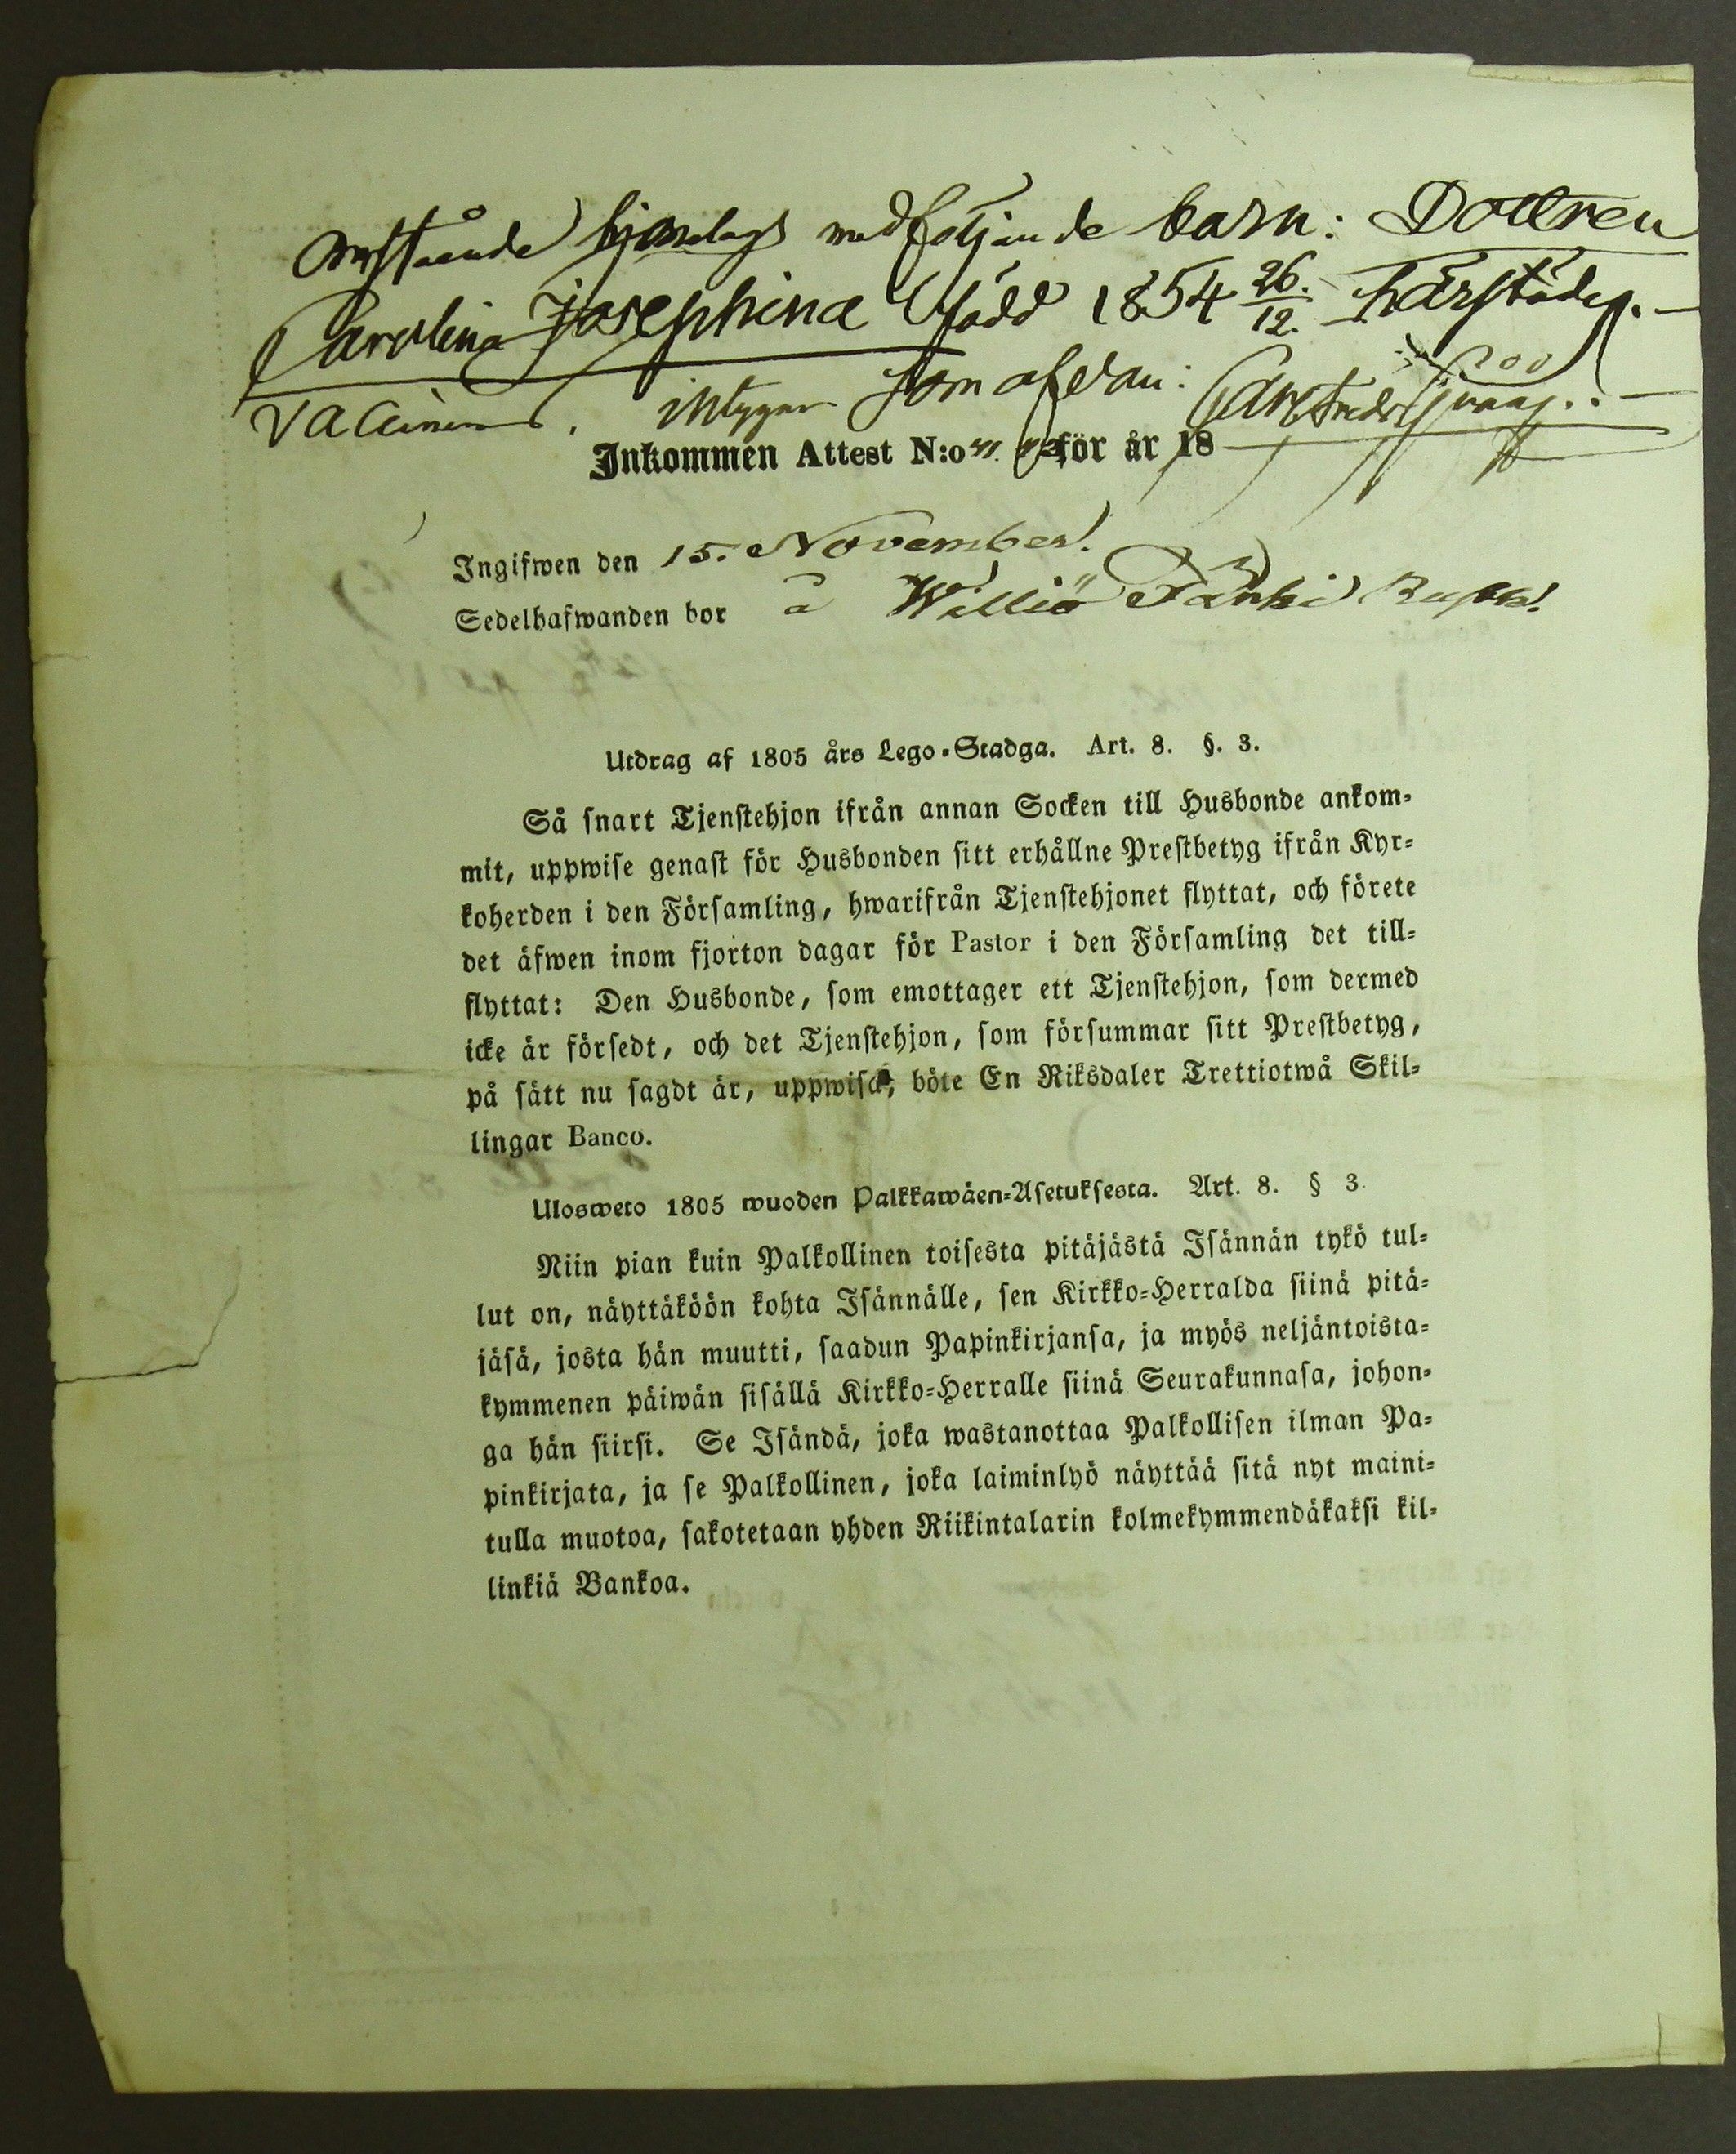 omstående hjonelags medföljande barn: Dottren
Carolina Josephina född 1854 26/12. härstädes. —
Vaccinerad, intygar som ofvan: Carl Fredr
Inkommen Attest N:o för år 18
Ingifwen den 15. November.
Sedelhafwanden bor å Williö
Utdrag af 1805 års Lego-Stadga. Art. 8. §. 3.
Så snart Tjenstehjon ifrån annan Socken till Husbonde ankom-
mit, uppwise genast för Husbonden sitt erhållne Prestbetyg ifrån Kyr-
koherden i den Församling, hwarifrån Tjenstehjonet flyttat, och förete
det äfwen inom fjorton dagar för Pastor i den Församling det till-
flyttat: Den Husbonde, som emottager ett Tjenstehjon, som dermed
icke är försedt, och det Tjenstehjon, som försummar sitt Prestbetyg,
på sätt nu sagdt är, uppwisa, böte En Riksdaler Trettiotwå Skil-
lingar Banco.
Ulosweto 1805 wuoden Palkkawäen-Asetuksesta. Art. 8. § 3.
Niin pian kuin Palkollinen toisesta pitäjästä Isännän tykö tul-
lut on, näyttäköön kohta Isännälle, sen Kirkko-Herralda siinä pitä-
jäsä, josta hän muutti, saadun Papinkirjansa, ja myös neljäntoista-
kymmenen päiwän sisällä Kirkko-Herralle siinä Seurakunnasa, johon-
ga hän siirsi. Se Isändä, joka wastanottaa Palkollisen ilman Pa-
pinkirjata, ja se Palkollinen, joka laiminlyö näyttää sitä nyt maini-
tulla muotoa, sakotetaan yhden Riikintalarin kolmekymmendäkaksi kil-
linkiä Bankoa.